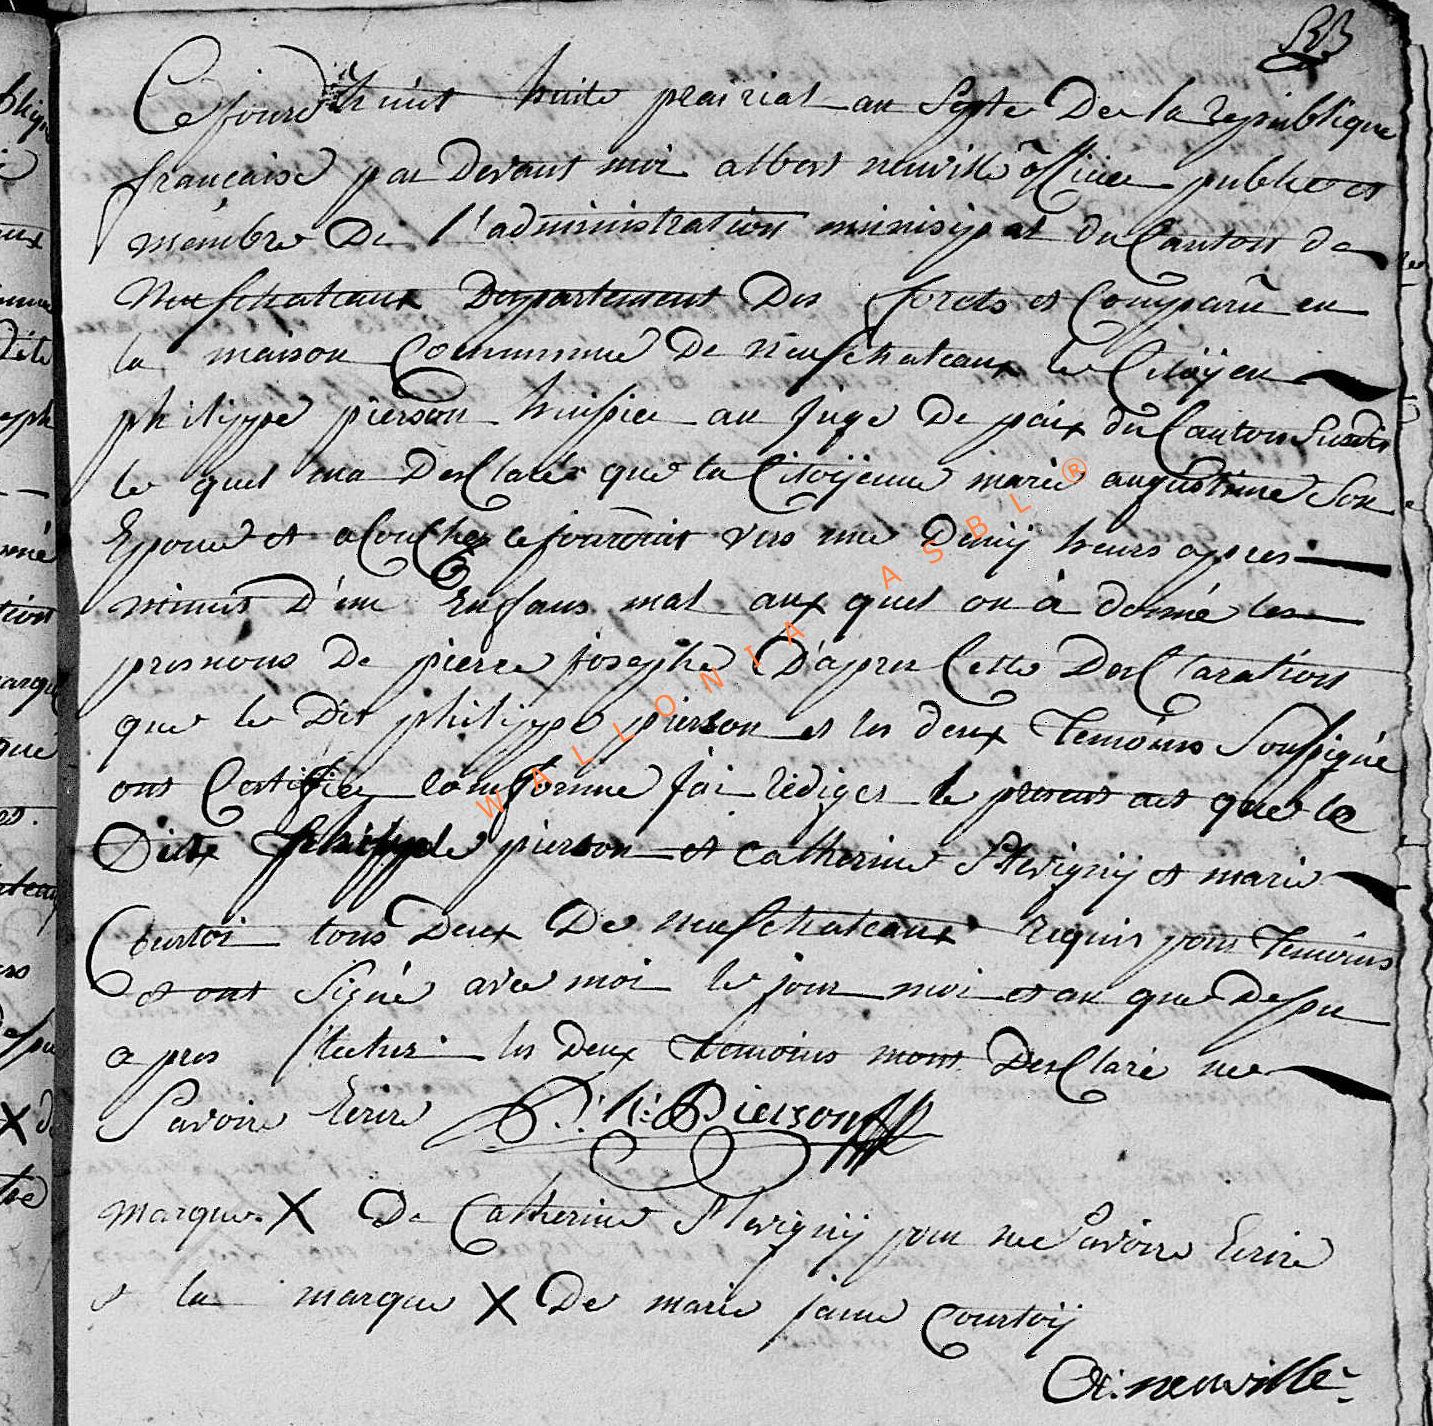 Ce jourd'huit huite prairial an Septe De la republique
française par Devant moi albert neuville officier public et
membre De l'administration minisipal du Canton de
Neufchateaux Departement Des forets et Comparu en
la maison Commune De neufchateaux le Citoÿen
philippe pierson huissier au juge De paix du Canton Susdit
le quel ma DesClaré que la Citoijenne marie augustinne Son
Epouse et acouchez ce jourduit vers une Demij heurs apres
minuit D'un Enfans mal aux quel on à donné les
presnoms De pierre josephe D'apres Cette DesClaration
que le Dit philippe pierson et les deux Temoins Soussigné
ont Certifiée Comforme j'ai rédiges le present act que le
Ditx philippe pierson et catherine Stevignij et marie
Courtoi tous Deux De neufchateaux requis pour Temoins
et ont Signé avec moi le jour moi et an que Dessu
apres lecture les Deux Temoins mont DesClaré ne
Savoire Ecrire P: h: Pierson
WALLONIA ASBL ®
marque X De Catherine Stevignij pour ne Savoire Ecrire
et la marque X De marie janne Courtoij
A: neuville